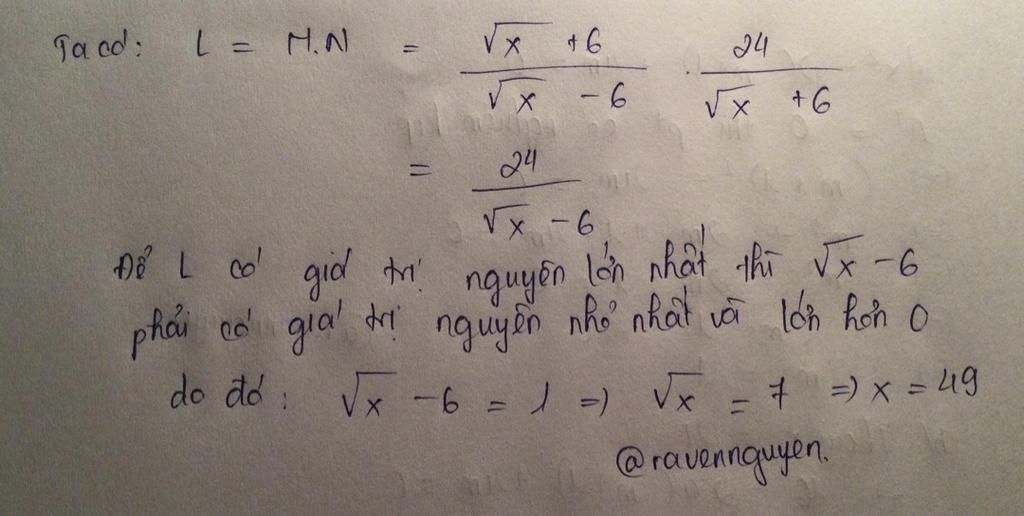 Ta có: L = M.N = √x +6 / √x - 6 . 24 / √x +6
= 24 / √x - 6
Để L có giá trị nguyên lớn nhất thì √x - 6
phải có giá trị nguyên nhỏ nhất và lớn hơn 0
do đó: √x - 6 = 1 => √x = 7 => x = 49
@ravennguyen.